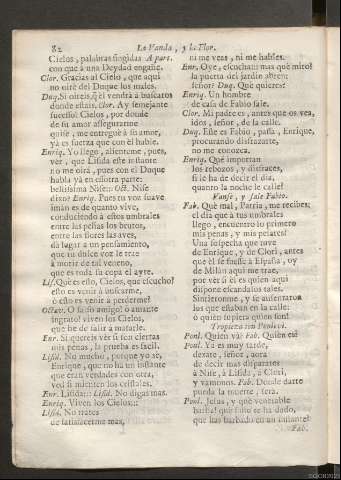 82 La Vanda, y la Flor.
Cielos, palabras fingidas A part.
con que à una Deydad engañe.
Clor. Gracias al Cielo, que aqui
no oirè del Duque los males.
Duq. Si oireis, q̃ èl vendrà à buscaros
donde estais. Clor. Ay semejante
sucesso! Cielos, por donde
de su amor assegurarme
quise, me entreguè à su amor,
yà es fuerza que con èl hable.
Enriq. Yo llego, alientenme, pues,
vèr, que Lisida este instante
no me oirà, pues con el Duque
habla yà en estotra parte:
bellissima Nise:: Oct. Nise
dixo? Enriq. Pues tu voz suave
imàn es de quanto vive,
conduciendo à estos umbrales
entre las peñas los brutos,
entre las flores las aves,
dà lugar à un pensamiento,
que tu dulce voz le trae
à morir de tal veneno,
que es toda su copa el ayre.
Lis. Què es esto, Cielos, que escucho?
esto es venir à buscarme,
ò esto es venir à perderme?
Octav. O falso amigo! ò amante
ingrato! viven los Cielos,
que he de salir à matarle.
Enr. Si quereis vèr si son ciertas
mis penas, la prueba es facil.
Lisid. No mucho, porque yo sè,
Enrique, que no ha un instante
que eran verdades con otra,
ved si mienten los cristales.
Enr. Lisida::: Lisid. No digas mas.
Enriq. Viven los Cielos:::
Lisid. No trates
de satisfacerme mas,
ni me veas, ni me hables.
Enr. Oye, escucha: mas què miro!
la puerta del jardin abren:
señor? Duq. Què quieres?
Enriq. Un hombre
de casa de Fabio sale.
Clor. Mi padre es, antes que os vea,
idos, señor, de la calle.
Duq. Este es Fabio, passa, Enrique,
procurando disfrazarte,
no me conozca.
Enriq. Què importan
los rebozos, y disfraces,
si le ha de decir el dia,
quanto la noche le calle?
Vanse, y sale Fabio.
Fab. Què mal, Patria, me recibes;
el dia que à tus umbrales
llego, encuentro lo primero
mis penas, y mis pesares!
Una sospecha que tuve
de Enrique, y de Clori, antes
que èl se fuesse à España, oy
de Milàn aqui me trae,
por vèr si èl es quien aqui
dispone escandalos tales.
Sintieronme, y se ausentaron
los que estaban en la calle:
ò quien supiera quien son!
Tropieza con Ponlevi.
Ponl. Quien và? Fab. Quien es?
Ponl. Yà es muy tarde,
dexate, señor, aora
de decir mas disparates
à Nise, à Lisida, à Clori,
y vamonos. Fab. Donde darte
pueda la muerte, serà.
Ponl. Jesus, y què venerable
barba! què susto se ha dado,
que has barbado en un instante!
Fab.